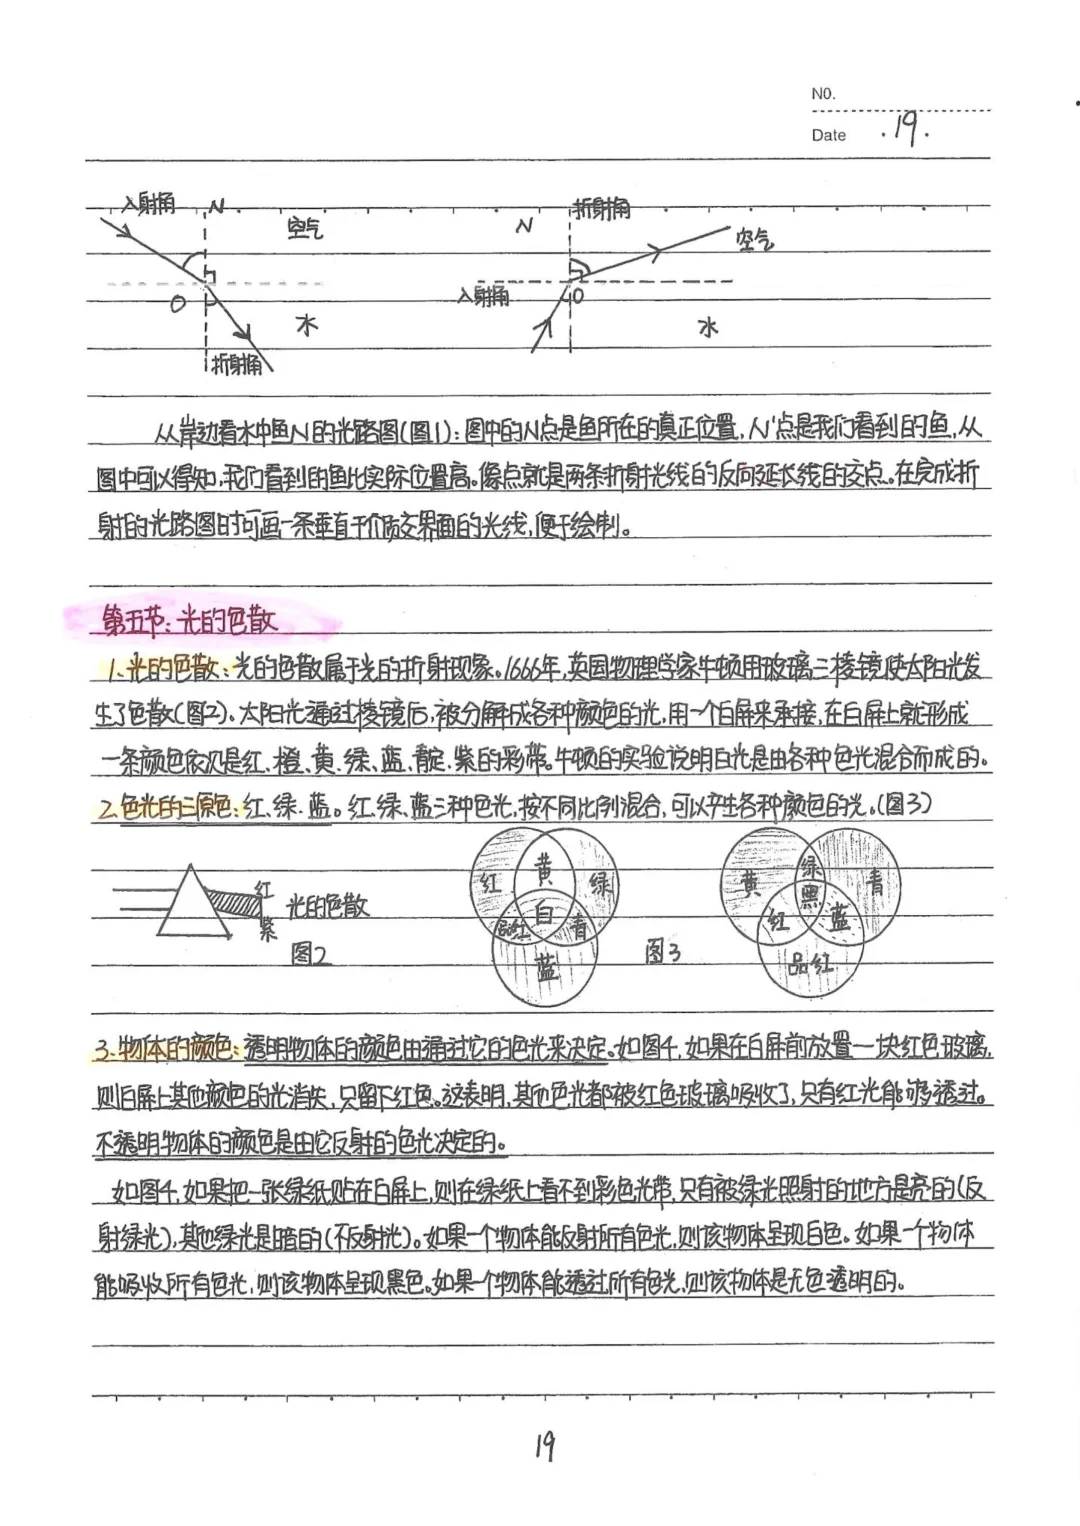 NO.
Date .19.
入射角 N 空气 N 折射角 空气
O 水 入射角 O 水
折射角
从岸边看水中鱼N的光路图(图1):图中的N点是鱼所在的真正位置,N'点是我们看到的鱼,从
图中可以得知,我们看到的鱼比实际位置高。像点就是两条折射光线的反向延长线的交点。在完成折
射的光路图时可画一条垂直于介质交界面的光线,便于绘制。
第五节:光的色散
1.光的色散:光的色散属于光的折射现象。1666年,英国物理学家牛顿用玻璃三棱镜使太阳光发
生了色散(图2)。太阳光通过棱镜后,被分解成各种颜色的光,用一个白屏来承接,在白屏上就形成
一条颜色依次是红、橙、黄、绿、蓝、靛、紫的彩带。牛顿的实验说明白光是由各种色光混合而成的。
2.色光的三原色:红、绿、蓝。红、绿、蓝三种色光,按不同比例混合,可以产生各种颜色的光。(图3)
红 光的色散
紫
图2
红 黄 绿
品红 白 青
蓝
图3
黄 绿 青
黑
红 蓝
品红
3.物体的颜色:透明物体的颜色由通过它的色光来决定。如图4,如果在白屏前放置一块红色玻璃,
则白屏上其他颜色的光消失,只留下红色。这表明,其他色光都被红色玻璃吸收了,只有红光能够透过。
不透明物体的颜色是由它反射的色光决定的。
如图4,如果把一张绿纸贴在白屏上,则在绿纸上看不到彩色光带,只有被绿光照射的地方是亮的(反
射绿光),其他绿光是暗的(不反射光)。如果一个物体能反射所有色光,则该物体呈现白色。如果一个物体
能吸收所有色光,则该物体呈现黑色。如果一个物体能透过所有色光,则该物体是无色透明的。
19